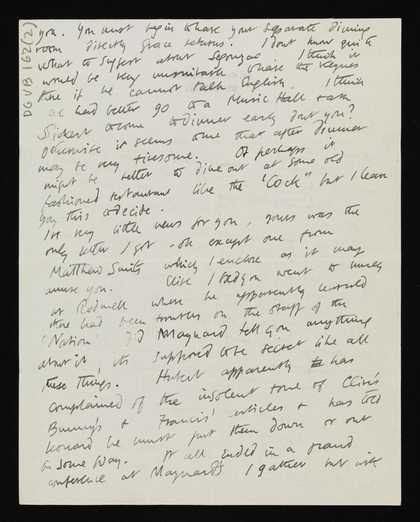 DGVB 162(2)
you. You must begin to have your separate dining
room directly Grace returns. I don't know quite
what to suggest about Segonzac I think it
would be very unsuitable to have the Keynes
there if he cannot talk English. I think
we had better go to a Music Hall & ask
to come to dinner early don't you?
Otherwise it seems to me that after dinner
may be very tiresome. Or perhaps it
might be better to dine out at some old
fashioned restaurant like the "Cock" but I leave
you this to decide.
I've very little news for you, yours was the
only letter I got - oh except one from
Matthew Smith which I enclose as it may
amuse you. Clive I told you went to lunch
at Rodmell where he apparently learned
there had been troubles on the staff of the
'Nation'. Did Maynard tell you anything
about it, its supposed to be secret like all
these things. Hubert apparently has
complained of the insolent tone of Clive's
Bunny's & Francis' articles & has told
Leonard he must put them down or out
in some way. It all ended in a grand
conference at Maynard's I gather but with